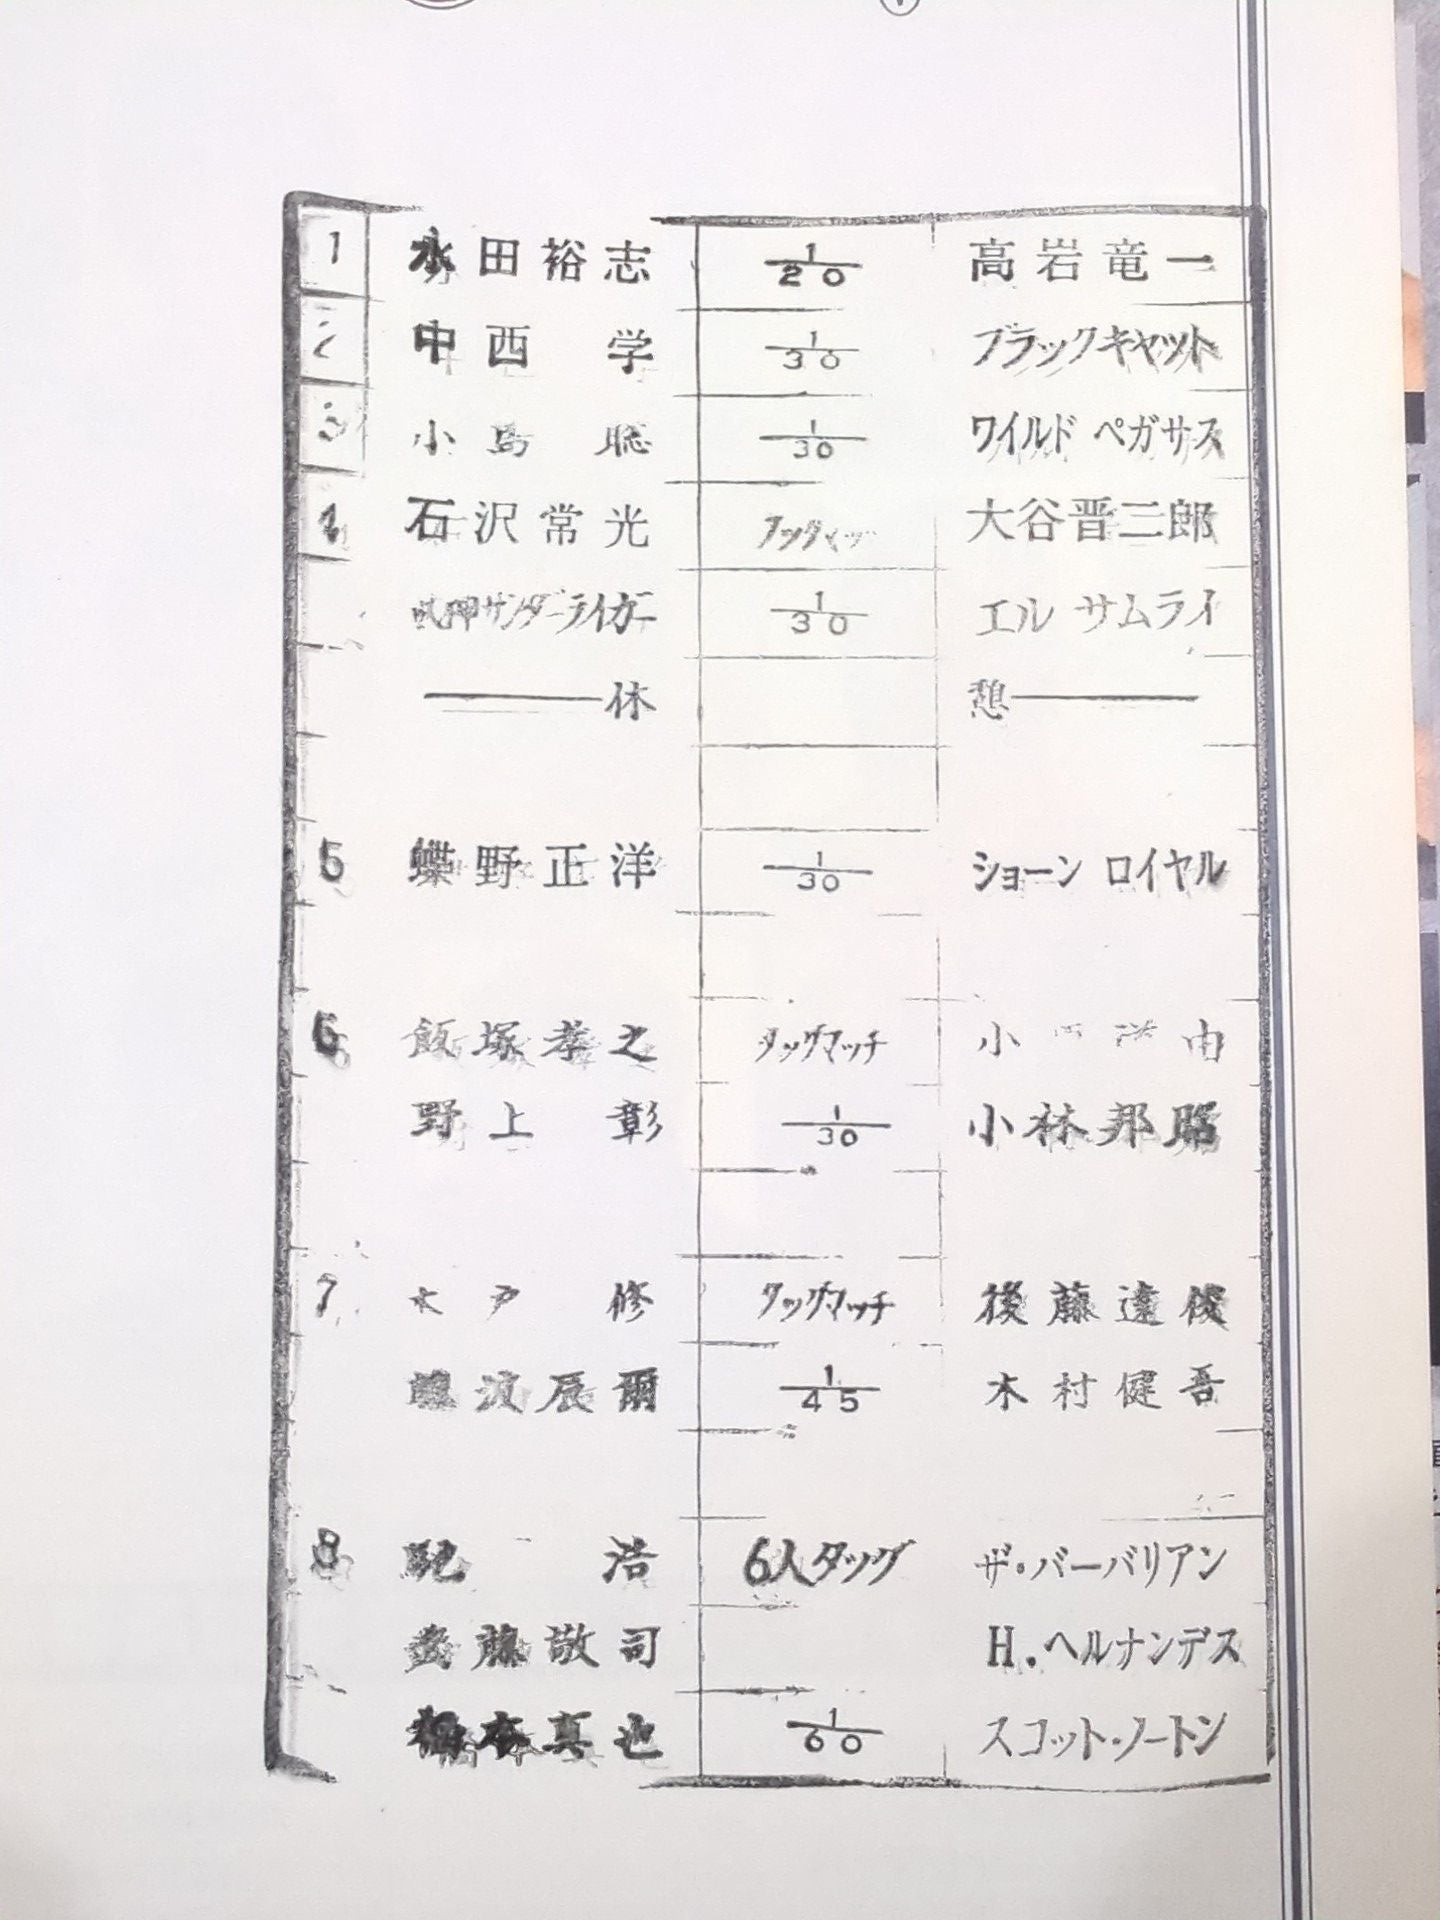 1 永田裕志 1/20 高岩竜一
2 中西学 1/30 ブラックキャット
3 小島聡 1/30 ワイルド ペガサス
4 石沢常光 タッグマッチ 大谷晋二郎
獣神サンダーライガー 1/30 エル サムライ
休 憩
5 蝶野正洋 1/30 ショーン ロイヤル
6 飯塚孝之 タッグマッチ 小 由
野上彰 1/30 小林邦昭
7 木戸修 タッグマッチ 後藤達俊
藤波辰爾 1/45 木村健吾
8 馳浩 6人タッグ ザ・バーバリアン
武藤敬司 H.ヘルナンデス
橋本真也 1/60 スコット・ノートン